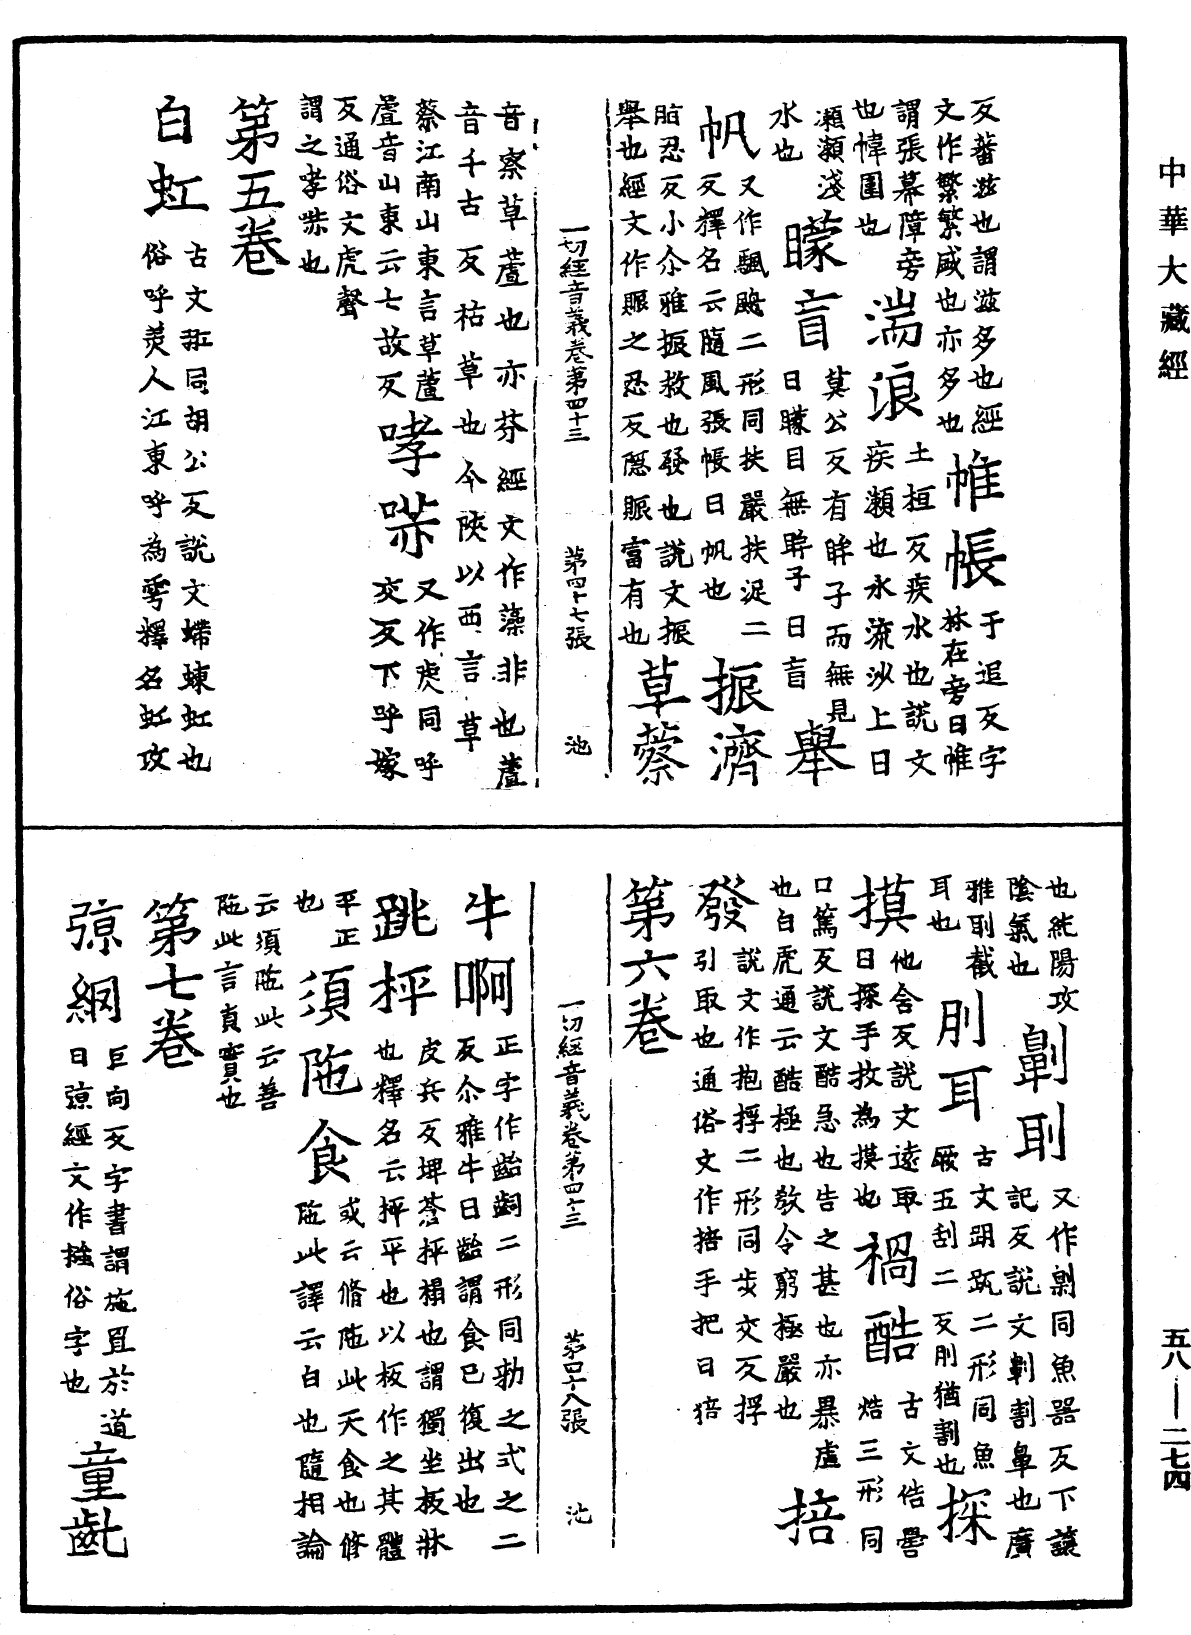 中華大藏經
反蕃滋也謂滋多也經
文作繁繁盛也亦多也
帷帳
于追反字
林在旁曰帷
謂張幕障旁
也幃圍也
湍浪
土桓反疾水也說文
疾瀨也水流沙上曰
瀨瀨淺
水也
矇盲
莫公反有眸子而無見
曰矇目無眸子曰盲
舉
帆
又作颿䬙二形同扶嚴扶泛二
反擇名云隨風張帳曰帆也
振濟
脂忍反小尒雅振救也發也說文振
舉也經文作賑之忍反隱賑富有也
草蔡
一切經音義卷第四十三 第四十七張 池
音察草蘆也亦芥經文作藻非也蘆
音千古反枯草也今陝以西言草
蔡江南山東言草蘆
蘆音山東云七故反
哮㖀
又作虓同呼
交反下呼嫁
反通俗文虎聲
謂之哮㖀也
第五卷
白虹
古文𧈫同胡公反說文螮蝀虹也
俗呼美人江東呼為雩釋名虹攻
也純陽攻
陰氣也
劓刵
又作劓同魚器反下讓
記反說文劓割鼻也廣
雅刵截
耳也
刖耳
古文跀䟣二形同魚
厥五刮二反刖猶割也
探
摸
他含反說文遠取
曰探手投為摸也
禍酷
古文俈嚳
焅三形同
口篤反說文酷急也告之甚也亦暴虐
也白虎通云酷極也教令窮極嚴也
掊
發
說文作抱捊二形同步交反捊
引取也通俗文作掊手把曰掊
第六卷
一切經音義卷第四十三 第四十八張 池
牛啊
正字作齝齠二形同勑之式之二
反尒雅牛曰齝謂食已復出也
跳枰
皮兵反埤蒼枰榻也謂獨坐板牀
也釋名云枰平也以板作之其體
平正
也
須陁食
或云脩陁此天食也脩
陁此譯云白也隨相論
云須陁此云善
陁此言貞實也
第七卷
弶網
巨向反字書謂施罝於道
曰弶經文作摾俗字也
童齔
五八—二七四